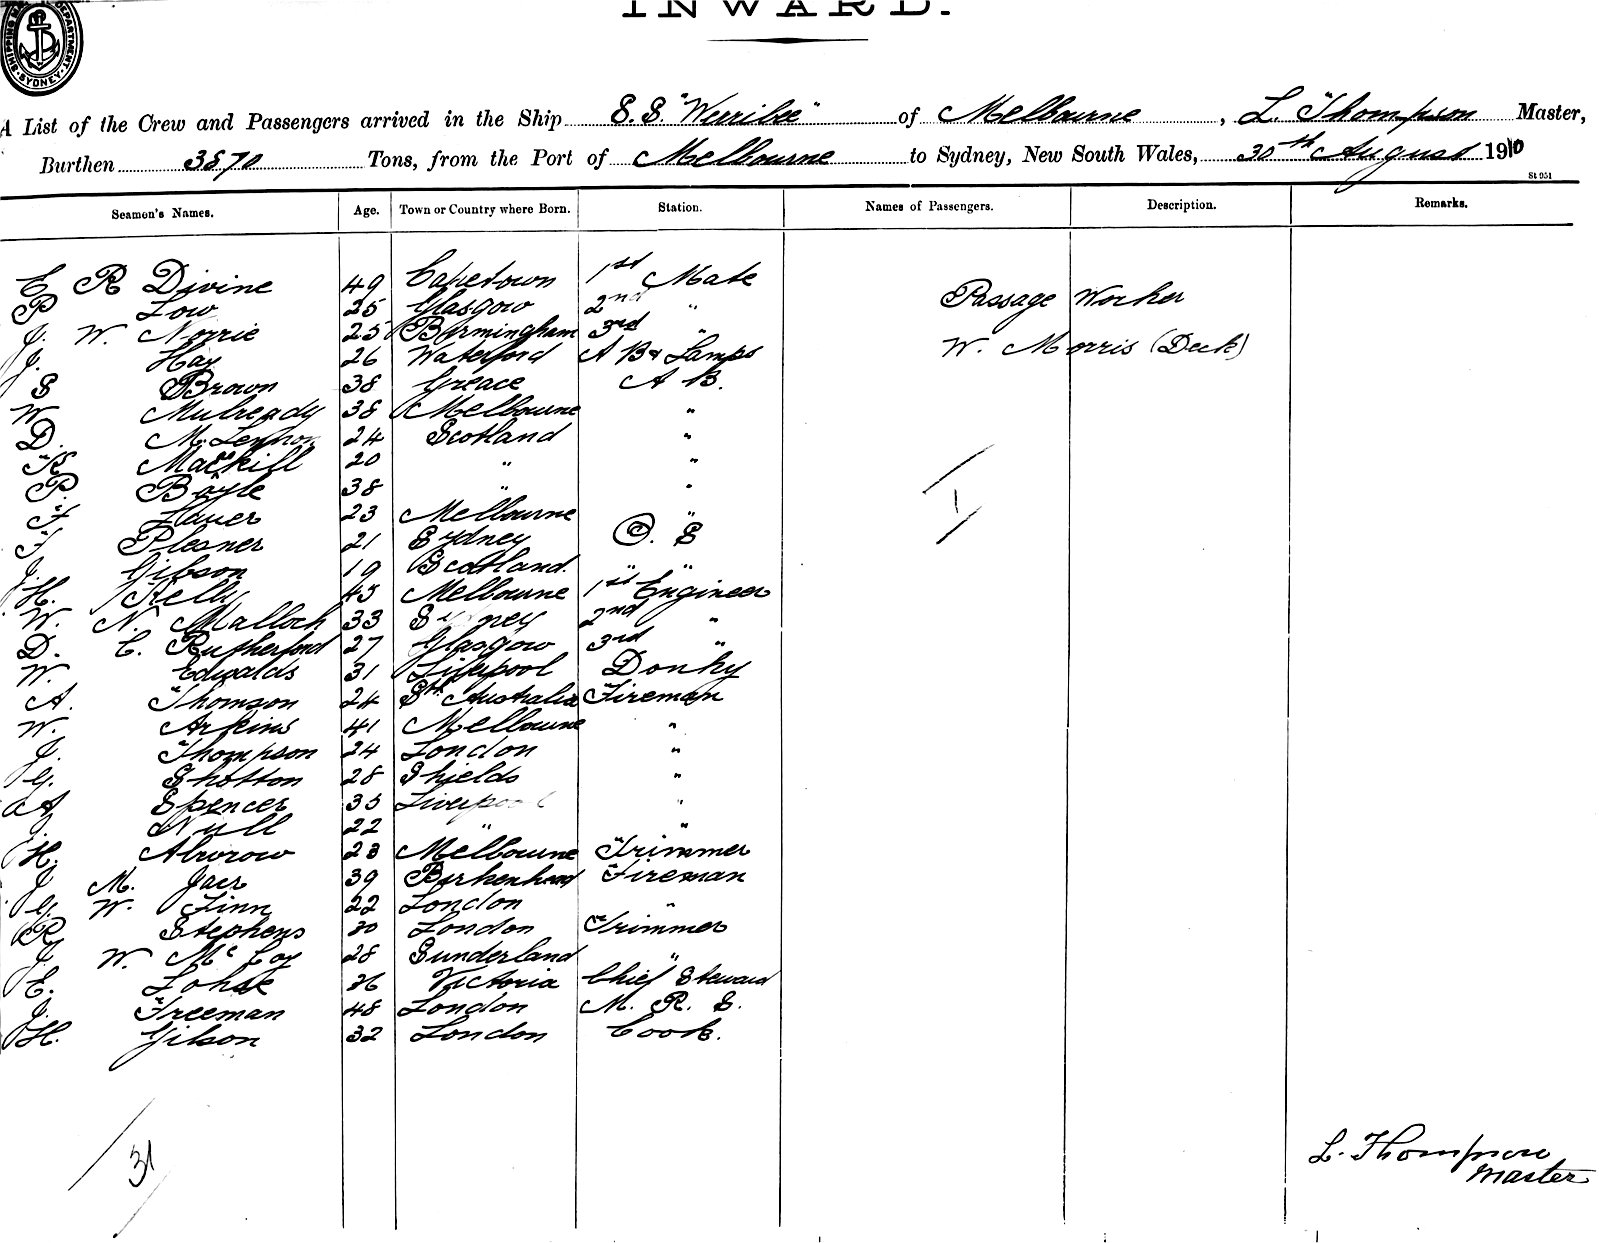 INWARD.
SHIPPING MA DEPARTMENT SYDNEY
A List of the Crew and Passengers arrived in the Ship S.S. "Werribee" of Melbourne, L. Thompson Master,
Burthen 3870 Tons, from the Port of Melbourne to Sydney, New South Wales, 30th August 1910
St 951
Seamen's Names. Age. Town or Country where Born. Station. Names of Passengers. Description. Remarks.
E R Divine 49 Capetown 1st Mate
P Low 25 Glasgow 2nd "
Passage Worker
J. W. Norrie 25 Birmingham 3rd "
J. Hay 26 Waterford A B & Lamps
W. Morris (Deck)
S Brown 38 Greace A B.
W Mulready 38 Melbourne "
D. McLennon 24 Scotland "
R Mackill 20 " "
P. Boyle 38 " "
F 23 Melbourne "
F Plesner 21 Sydney O. S
J. Gibson 19 Scotland. "
H. Kelly 43 Melbourne 1st Engineer
W. N. Malloch 33 Sydney 2nd "
D. C. Rutherford 27 Glasgow 3rd "
W. Edwalds 31 Liverpool Donky
A. Thomson 24 Sth Australia Fireman
W. Arkins 41 Melbourne "
J. Thompson 24 London "
G. Shotton 28 Shields "
A Spencer 35 Liverpool "
J. Null 22 " "
H. 23 Melbourne Trimmer
J M. 39 Birkenhead Fireman
G W. Finn 22 London "
R Stephens 30 London Trimmer
J W. McCoy 28 Sunderland "
E. 36 Victoria Chief Steward
J. Freeman 48 London M. R. S.
H. Gilson 32 London Cook.
1
31
L. Thompson
Master